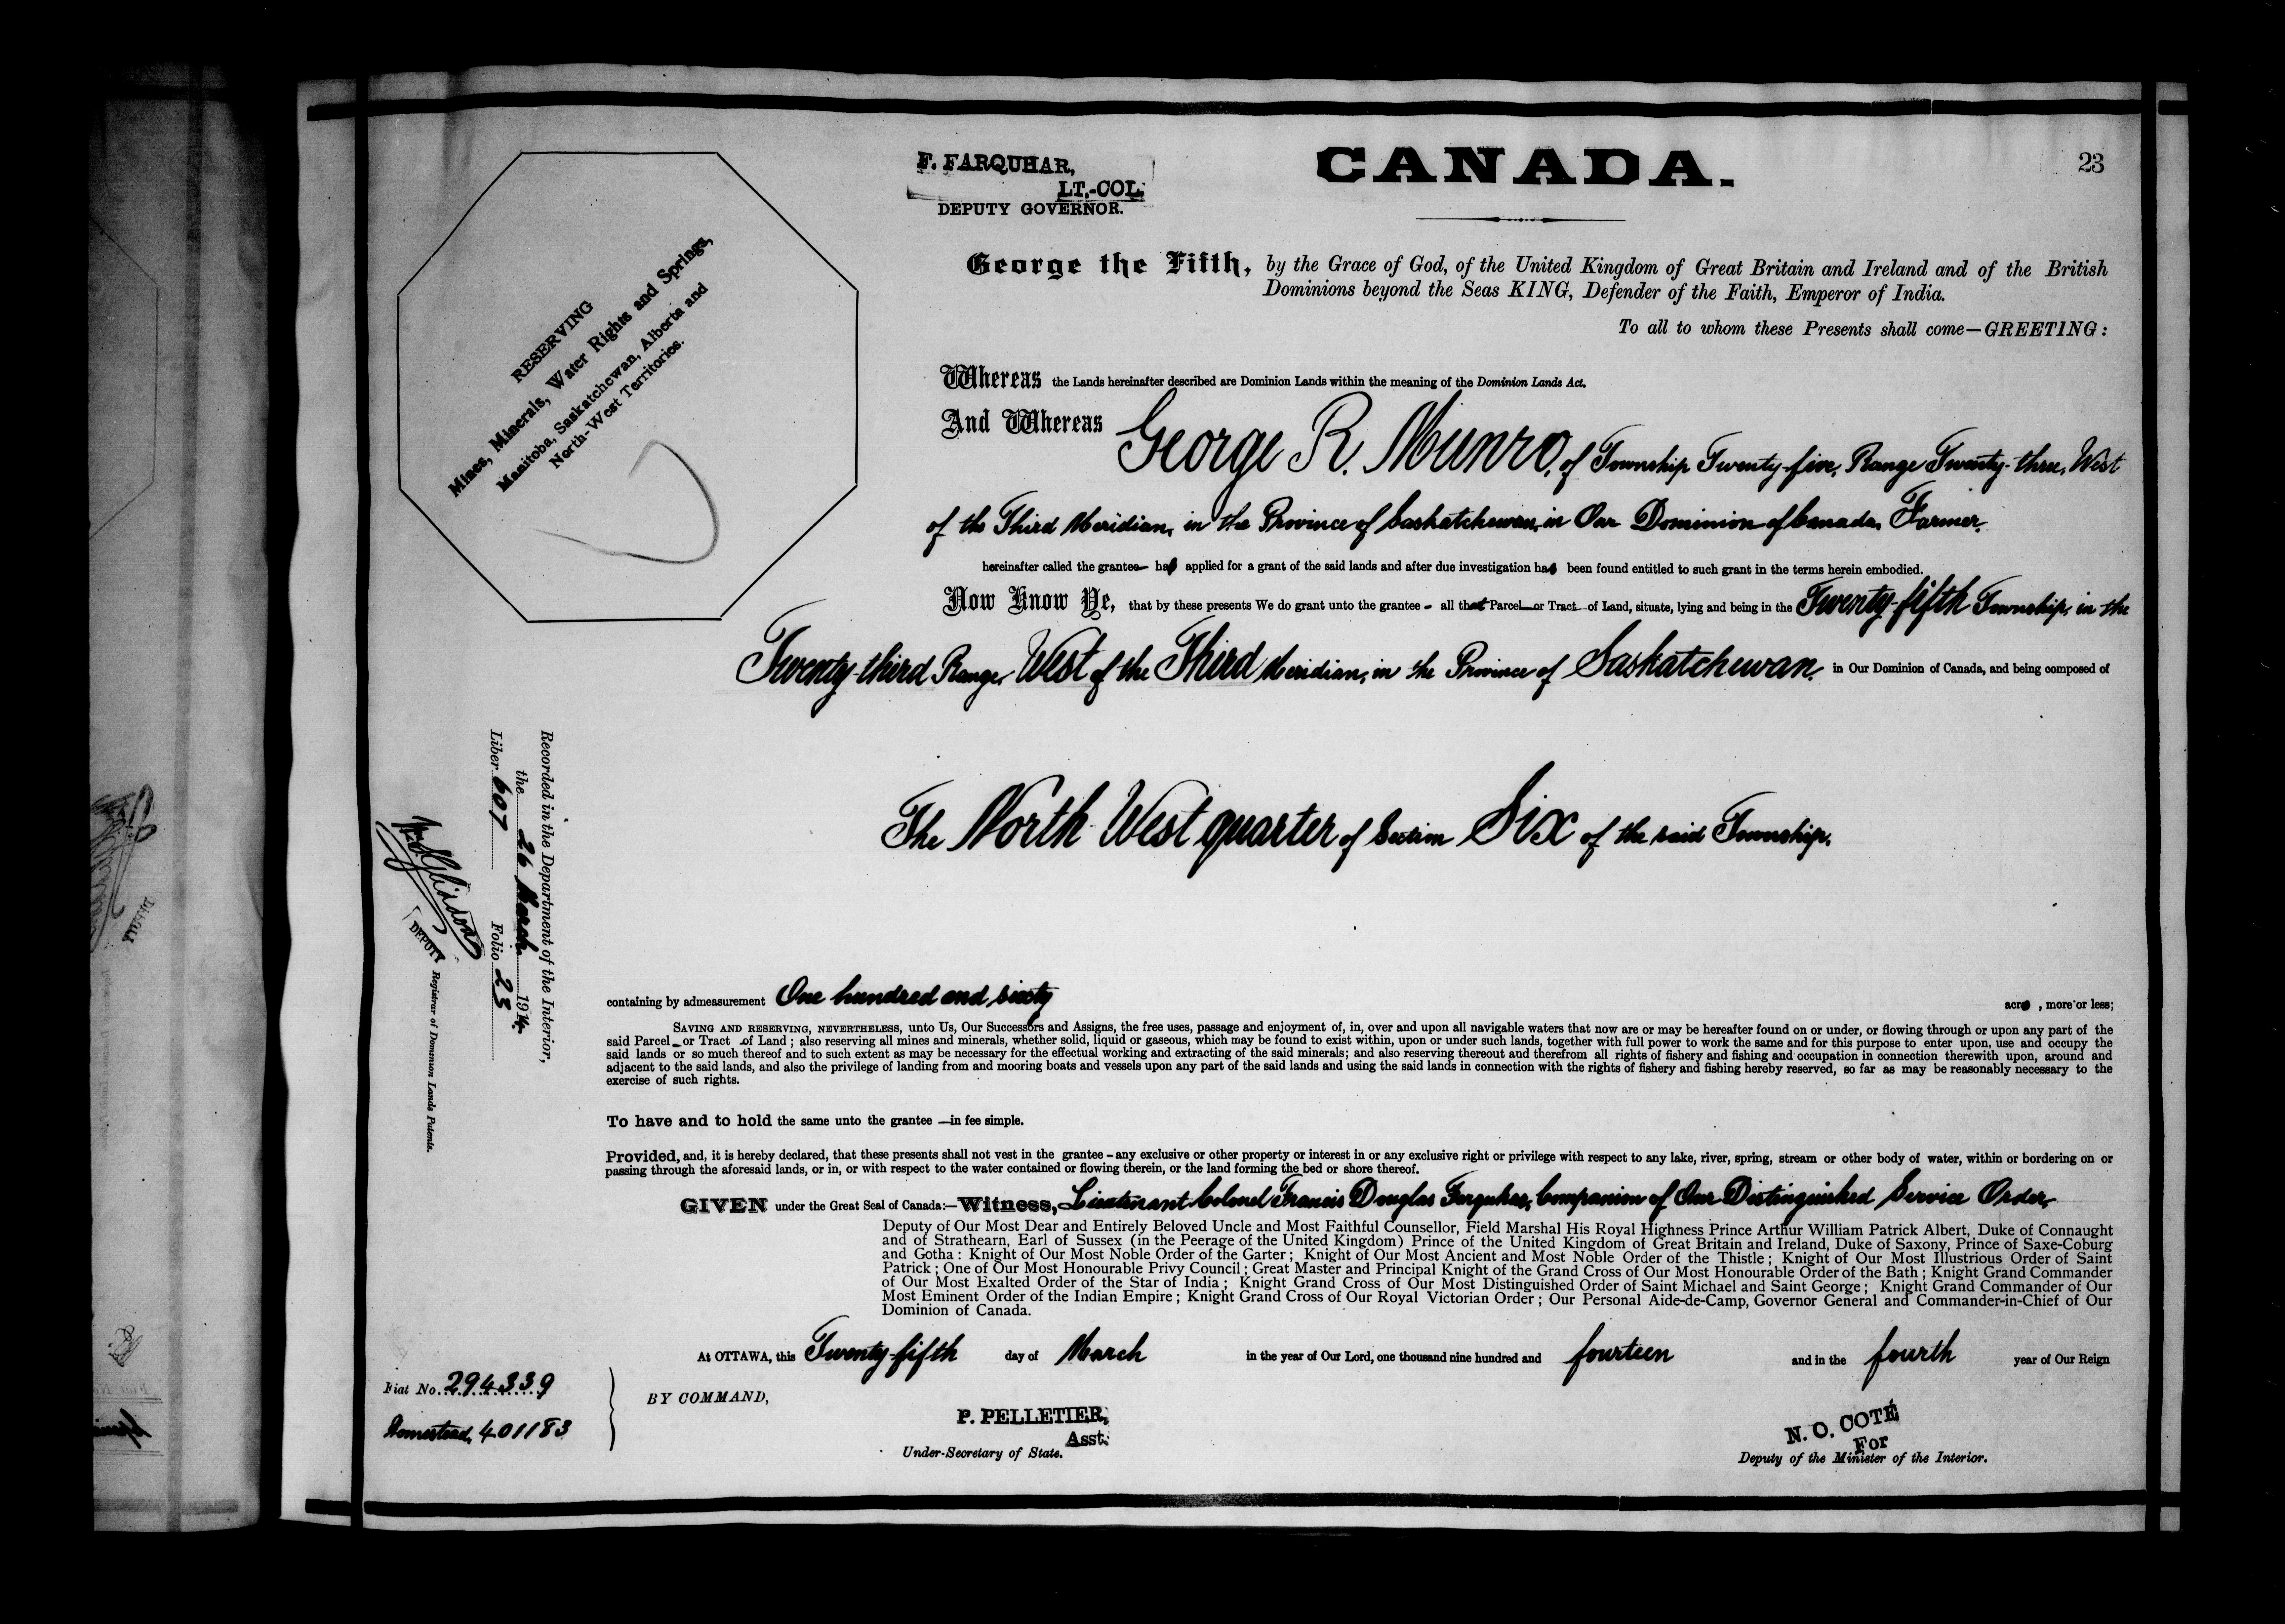 23
F. FARQUHAR,
LT.-COL.
DEPUTY GOVERNOR.
CANADA.
RESERVING
Mines, Minerals, Water Rights and Springs,
Manitoba, Saskatchewan, Alberta and
North-West Territories.
George the Fifth, by the Grace of God, of the United Kingdom of Great Britain and Ireland and of the British
Dominions beyond the Seas KING, Defender of the Faith, Emperor of India.
To all to whom these Presents shall come—GREETING:
Whereas the Lands hereinafter described are Dominion Lands within the meaning of the Dominion Lands Act.
And Whereas George R. Munro, of Township Twenty-five, Range Twenty-three, West
of the Third Meridian, in the Province of Saskatchewan, in Our Dominion of Canada, Farmer,
hereinafter called the grantee— has applied for a grant of the said lands and after due investigation has been found entitled to such grant in the terms herein embodied.
Now Know Ye, that by these presents We do grant unto the grantee - all that Parcel or Tract of Land, situate, lying and being in the Twenty-fifth Township, in the
Twenty-third Range, West of the Third Meridian, in the Province of Saskatchewan, in Our Dominion of Canada, and being composed of
The North West quarter of Section Six of the said Township,
Recorded in the Department of the Interior,
the 26 March 1914
Liber 607 Folio 23
DEPUTY Registrar of Dominion Lands Patents.
containing by admeasurement One hundred and sixty acres, more or less;
SAVING AND RESERVING, NEVERTHELESS, unto Us, Our Successors and Assigns, the free uses, passage and enjoyment of, in, over and upon all navigable waters that now are or may be hereafter found on or under, or flowing through or upon any part of the
said Parcel or Tract of Land; also reserving all mines and minerals, whether solid, liquid or gaseous, which may be found to exist within, upon or under such lands, together with full power to work the same and for this purpose to enter upon, use and occupy the
said lands or so much thereof and to such extent as may be necessary for the effectual working and extracting of the said minerals; and also reserving thereout and therefrom all rights of fishery and fishing and occupation in connection therewith upon, around and
adjacent to the said lands, and also the privilege of landing from and mooring boats and vessels upon any part of the said lands and using the said lands in connection with the rights of fishery and fishing hereby reserved, so far as may be reasonably necessary to the
exercise of such rights.
To have and to hold the same unto the grantee —in fee simple.
Provided, and, it is hereby declared, that these presents shall not vest in the grantee - any exclusive or other property or interest in or any exclusive right or privilege with respect to any lake, river, spring, stream or other body of water, within or bordering on or
passing through the aforesaid lands, or in, or with respect to the water contained or flowing therein, or the land forming the bed or shore thereof.
GIVEN under the Great Seal of Canada:—Witness, Lieutenant Colonel Francis Douglas Farquhar, Companion of Our Distinguished Service Order,
Deputy of Our Most Dear and Entirely Beloved Uncle and Most Faithful Counsellor, Field Marshal His Royal Highness Prince Arthur William Patrick Albert, Duke of Connaught
and of Strathearn, Earl of Sussex (in the Peerage of the United Kingdom) Prince of the United Kingdom of Great Britain and Ireland, Duke of Saxony, Prince of Saxe-Coburg
and Gotha: Knight of Our Most Noble Order of the Garter; Knight of Our Most Ancient and Most Noble Order of the Thistle; Knight of Our Most Illustrious Order of Saint
Patrick; One of Our Most Honourable Privy Council; Great Master and Principal Knight of the Grand Cross of Our Most Honourable Order of the Bath; Knight Grand Commander
of Our Most Exalted Order of the Star of India; Knight Grand Cross of Our Most Distinguished Order of Saint Michael and Saint George; Knight Grand Commander of Our
Most Eminent Order of the Indian Empire; Knight Grand Cross of Our Royal Victorian Order; Our Personal Aide-de-Camp, Governor General and Commander-in-Chief of Our
Dominion of Canada.
At OTTAWA, this Twenty-fifth day of March in the year of Our Lord, one thousand nine hundred and fourteen and in the fourth year of Our Reign
Fiat No. 294339
Homestead, 401183
BY COMMAND,
P. PELLETIER,
Asst.
Under-Secretary of State.
N. O. COTÉ
For
Deputy of the Minister of the Interior.